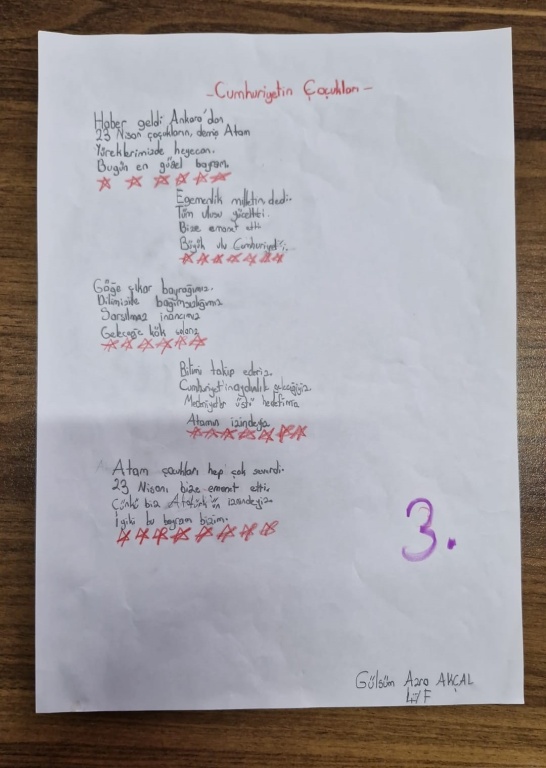 -Cumhuriyetin Çoçukları-
Haber geldi Ankara'dan
23 Nisan çoçukların, demiş Atam
Yüreklerimizde heyecan.
Bugün en güzel bayram.
Egemenlik milletin dedi.
Tüm ulusu yüceltti.
Bize emanet etti
Büyük ulu Cumhuriyet'i.
Göğe çıkar bayrağımız.
Dilimizde bağımsızlığımız
Sarsılmaz inancımız
Geleceğe kök salarız
Bilimi takip ederiz.
Cumhuriyet'in aydınlık geleceğiyiz.
Medeniyetler üstü hedefimiz
Atamın izindeyiz
Atam çocukları hep çok severdi.
23 Nisanı bize emanet etti.
Çünkü biz Atatürk'ün izindeyiz.
İyiki bu bayram bizim.
3.
Gülsüm Azra AKÇAL
4/F